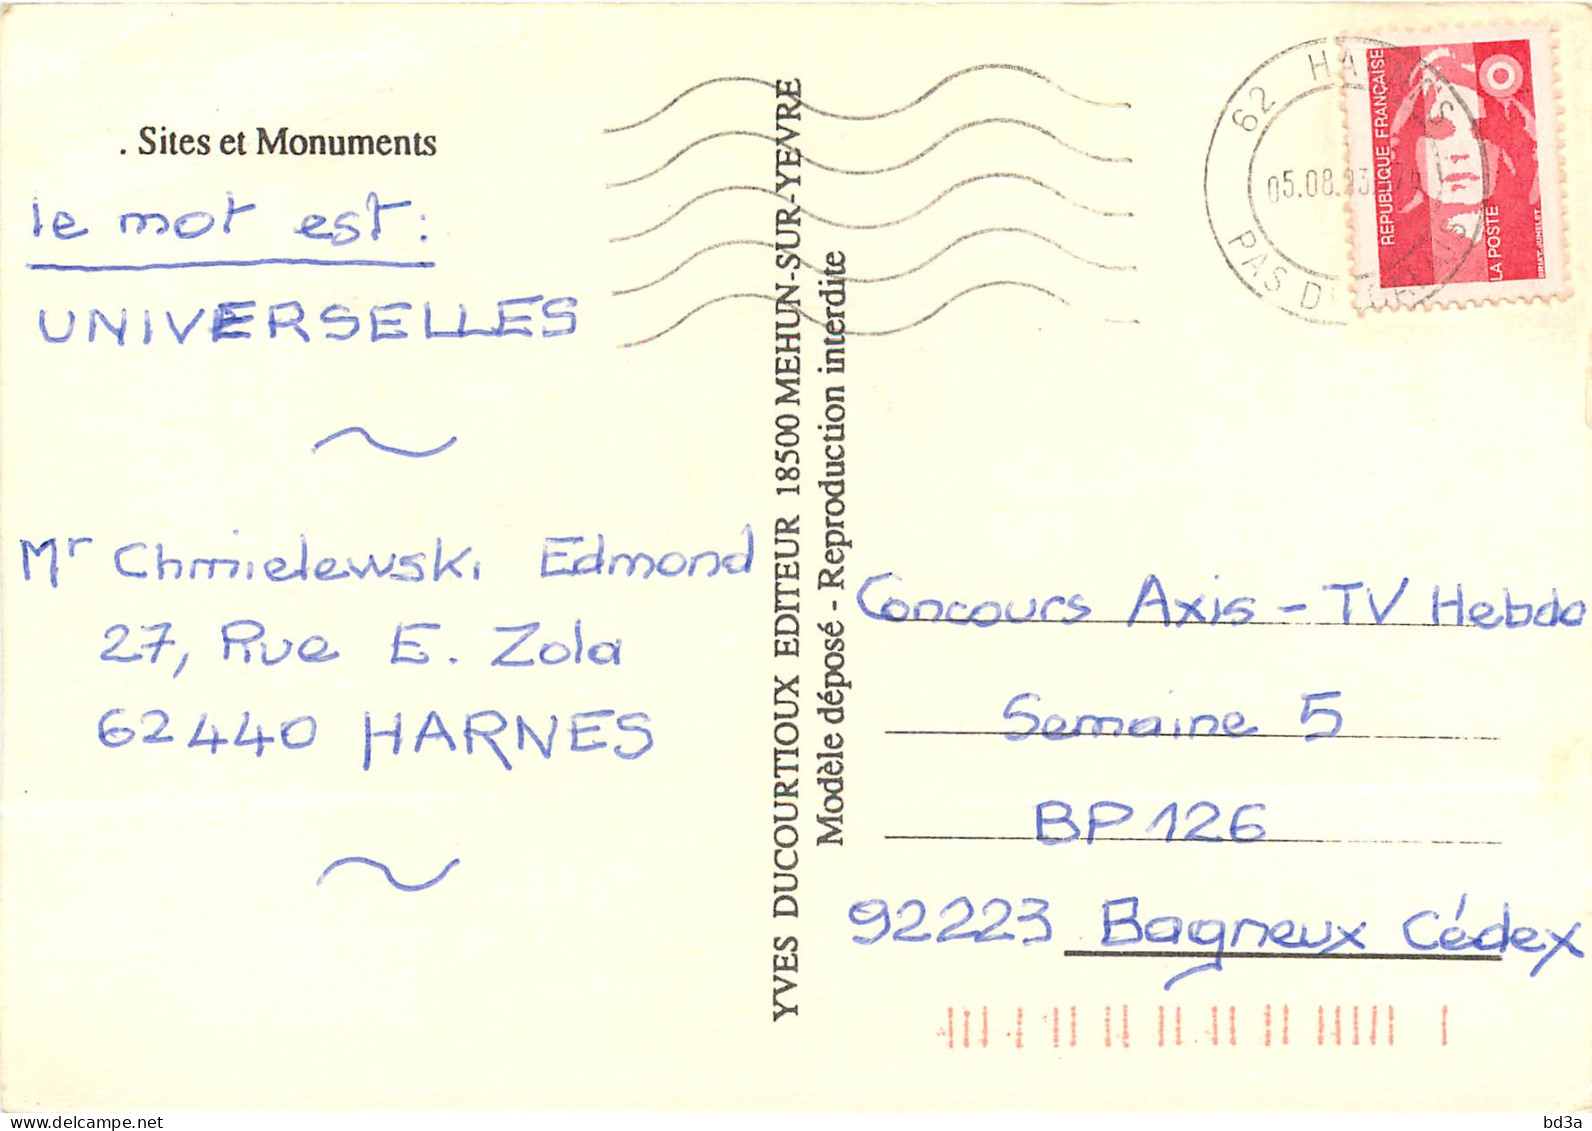 . Sites et Monuments
le mot est:
UNIVERSELLES
Mr Chmielewski Edmond
27, Rue E. Zola
62440 HARNES
YVES DUCOURTIOUX EDITEUR 18500 MEHUN-SUR-YEVRE
Modèle déposé - Reproduction interdite
62 HARNES
05.08.93
PAS DE CALAIS
REPUBLIQUE FRANÇAISE
LA POSTE
BRIAT-JUMELET
Concours Axis - TV Hebdo
Semaine 5
BP 126
92223 Bagneux Cédex
bd3a